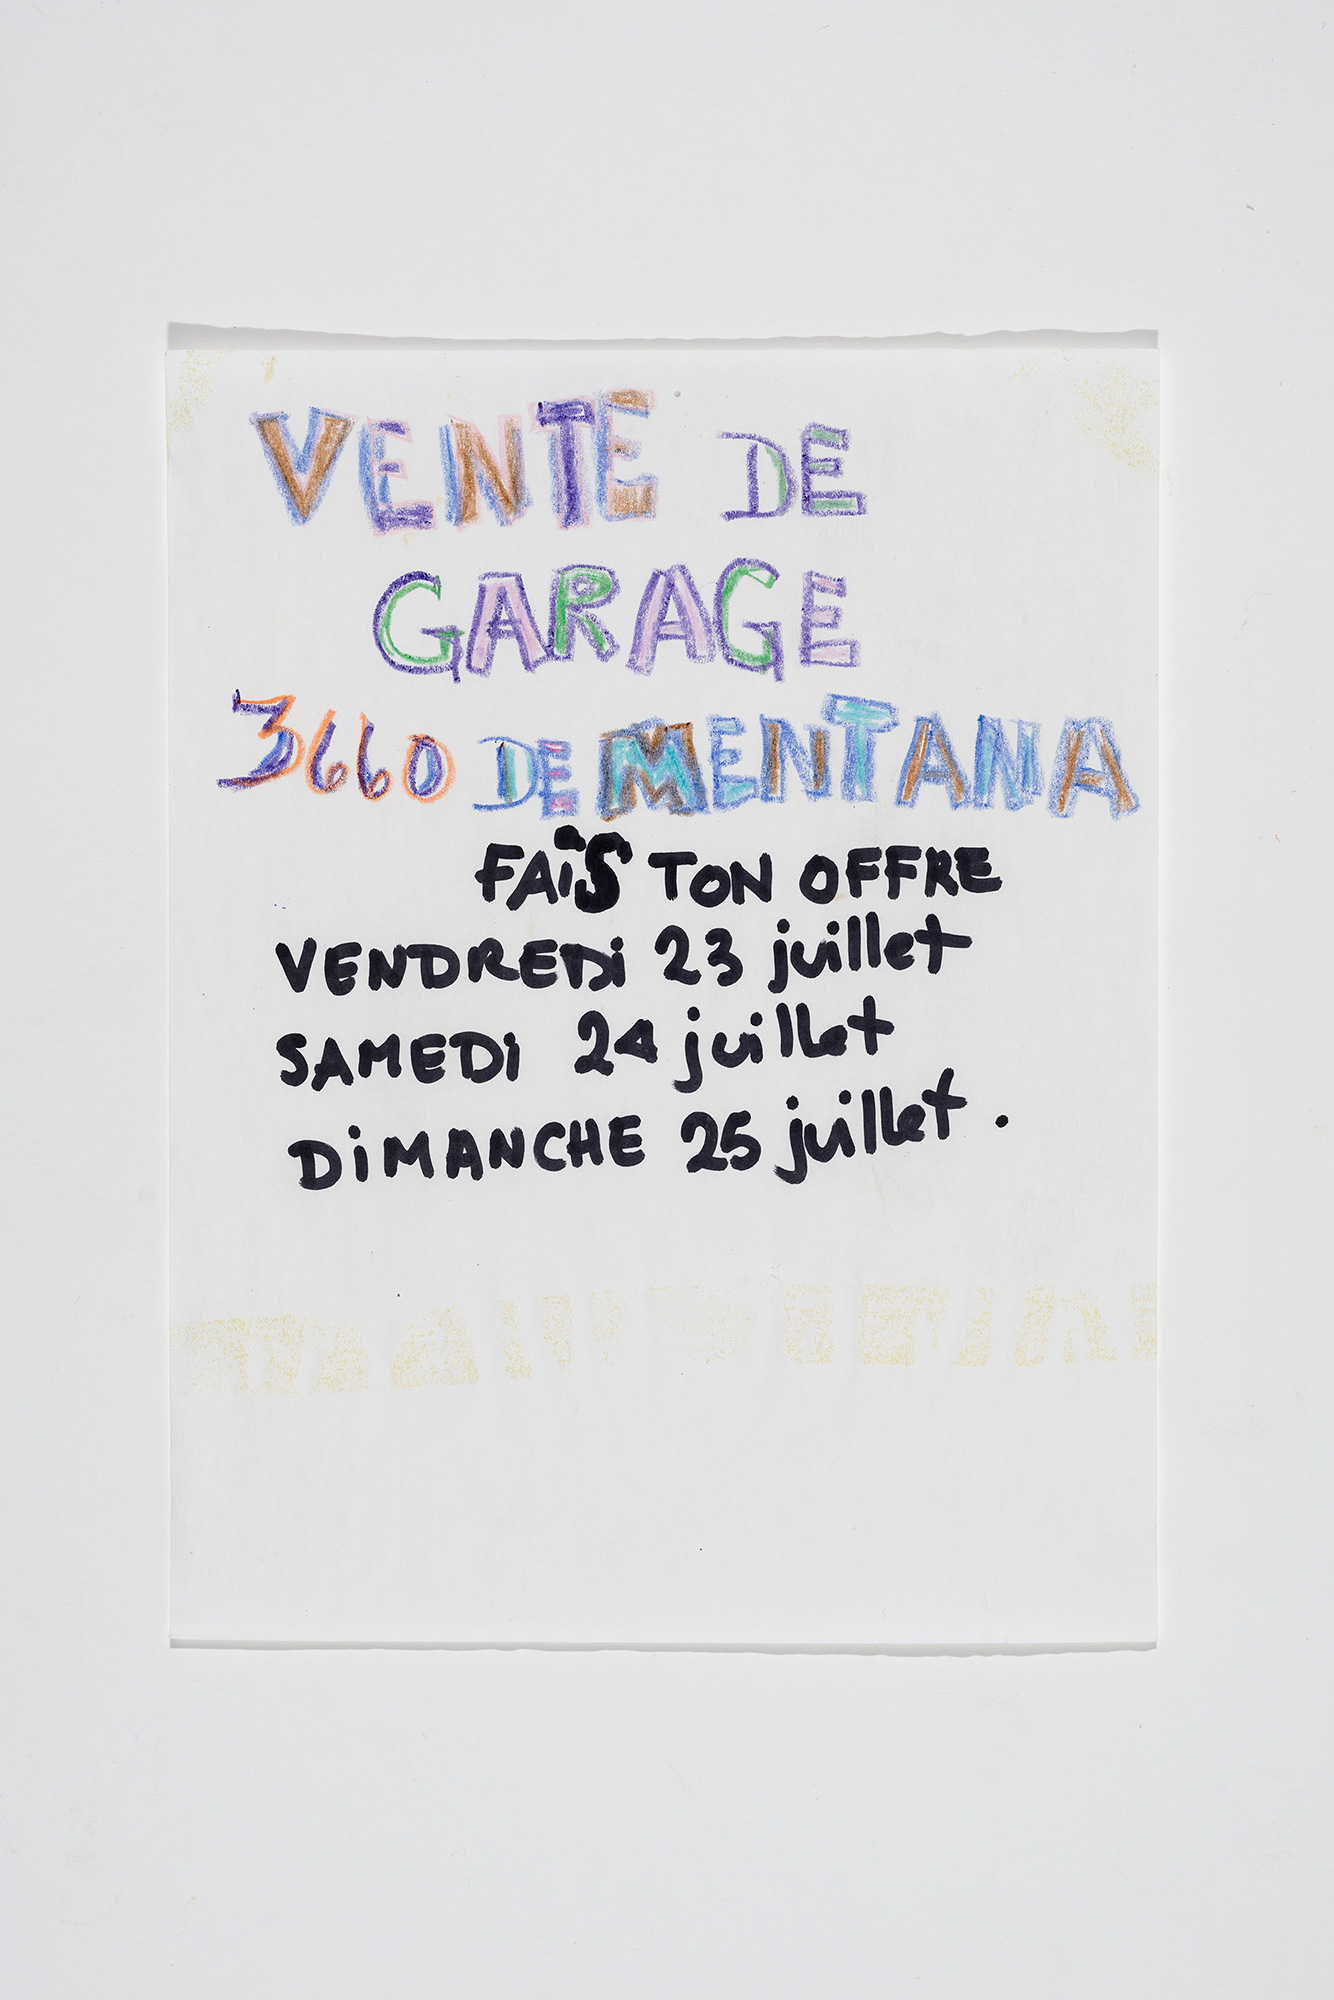 VENTE DE
GARAGE
3660 DE MENTANA
FAiS TON OFFRE
VENDREDi 23 juillet
SAMEDi 24 juillet
DiMANCHE 25 juillet.